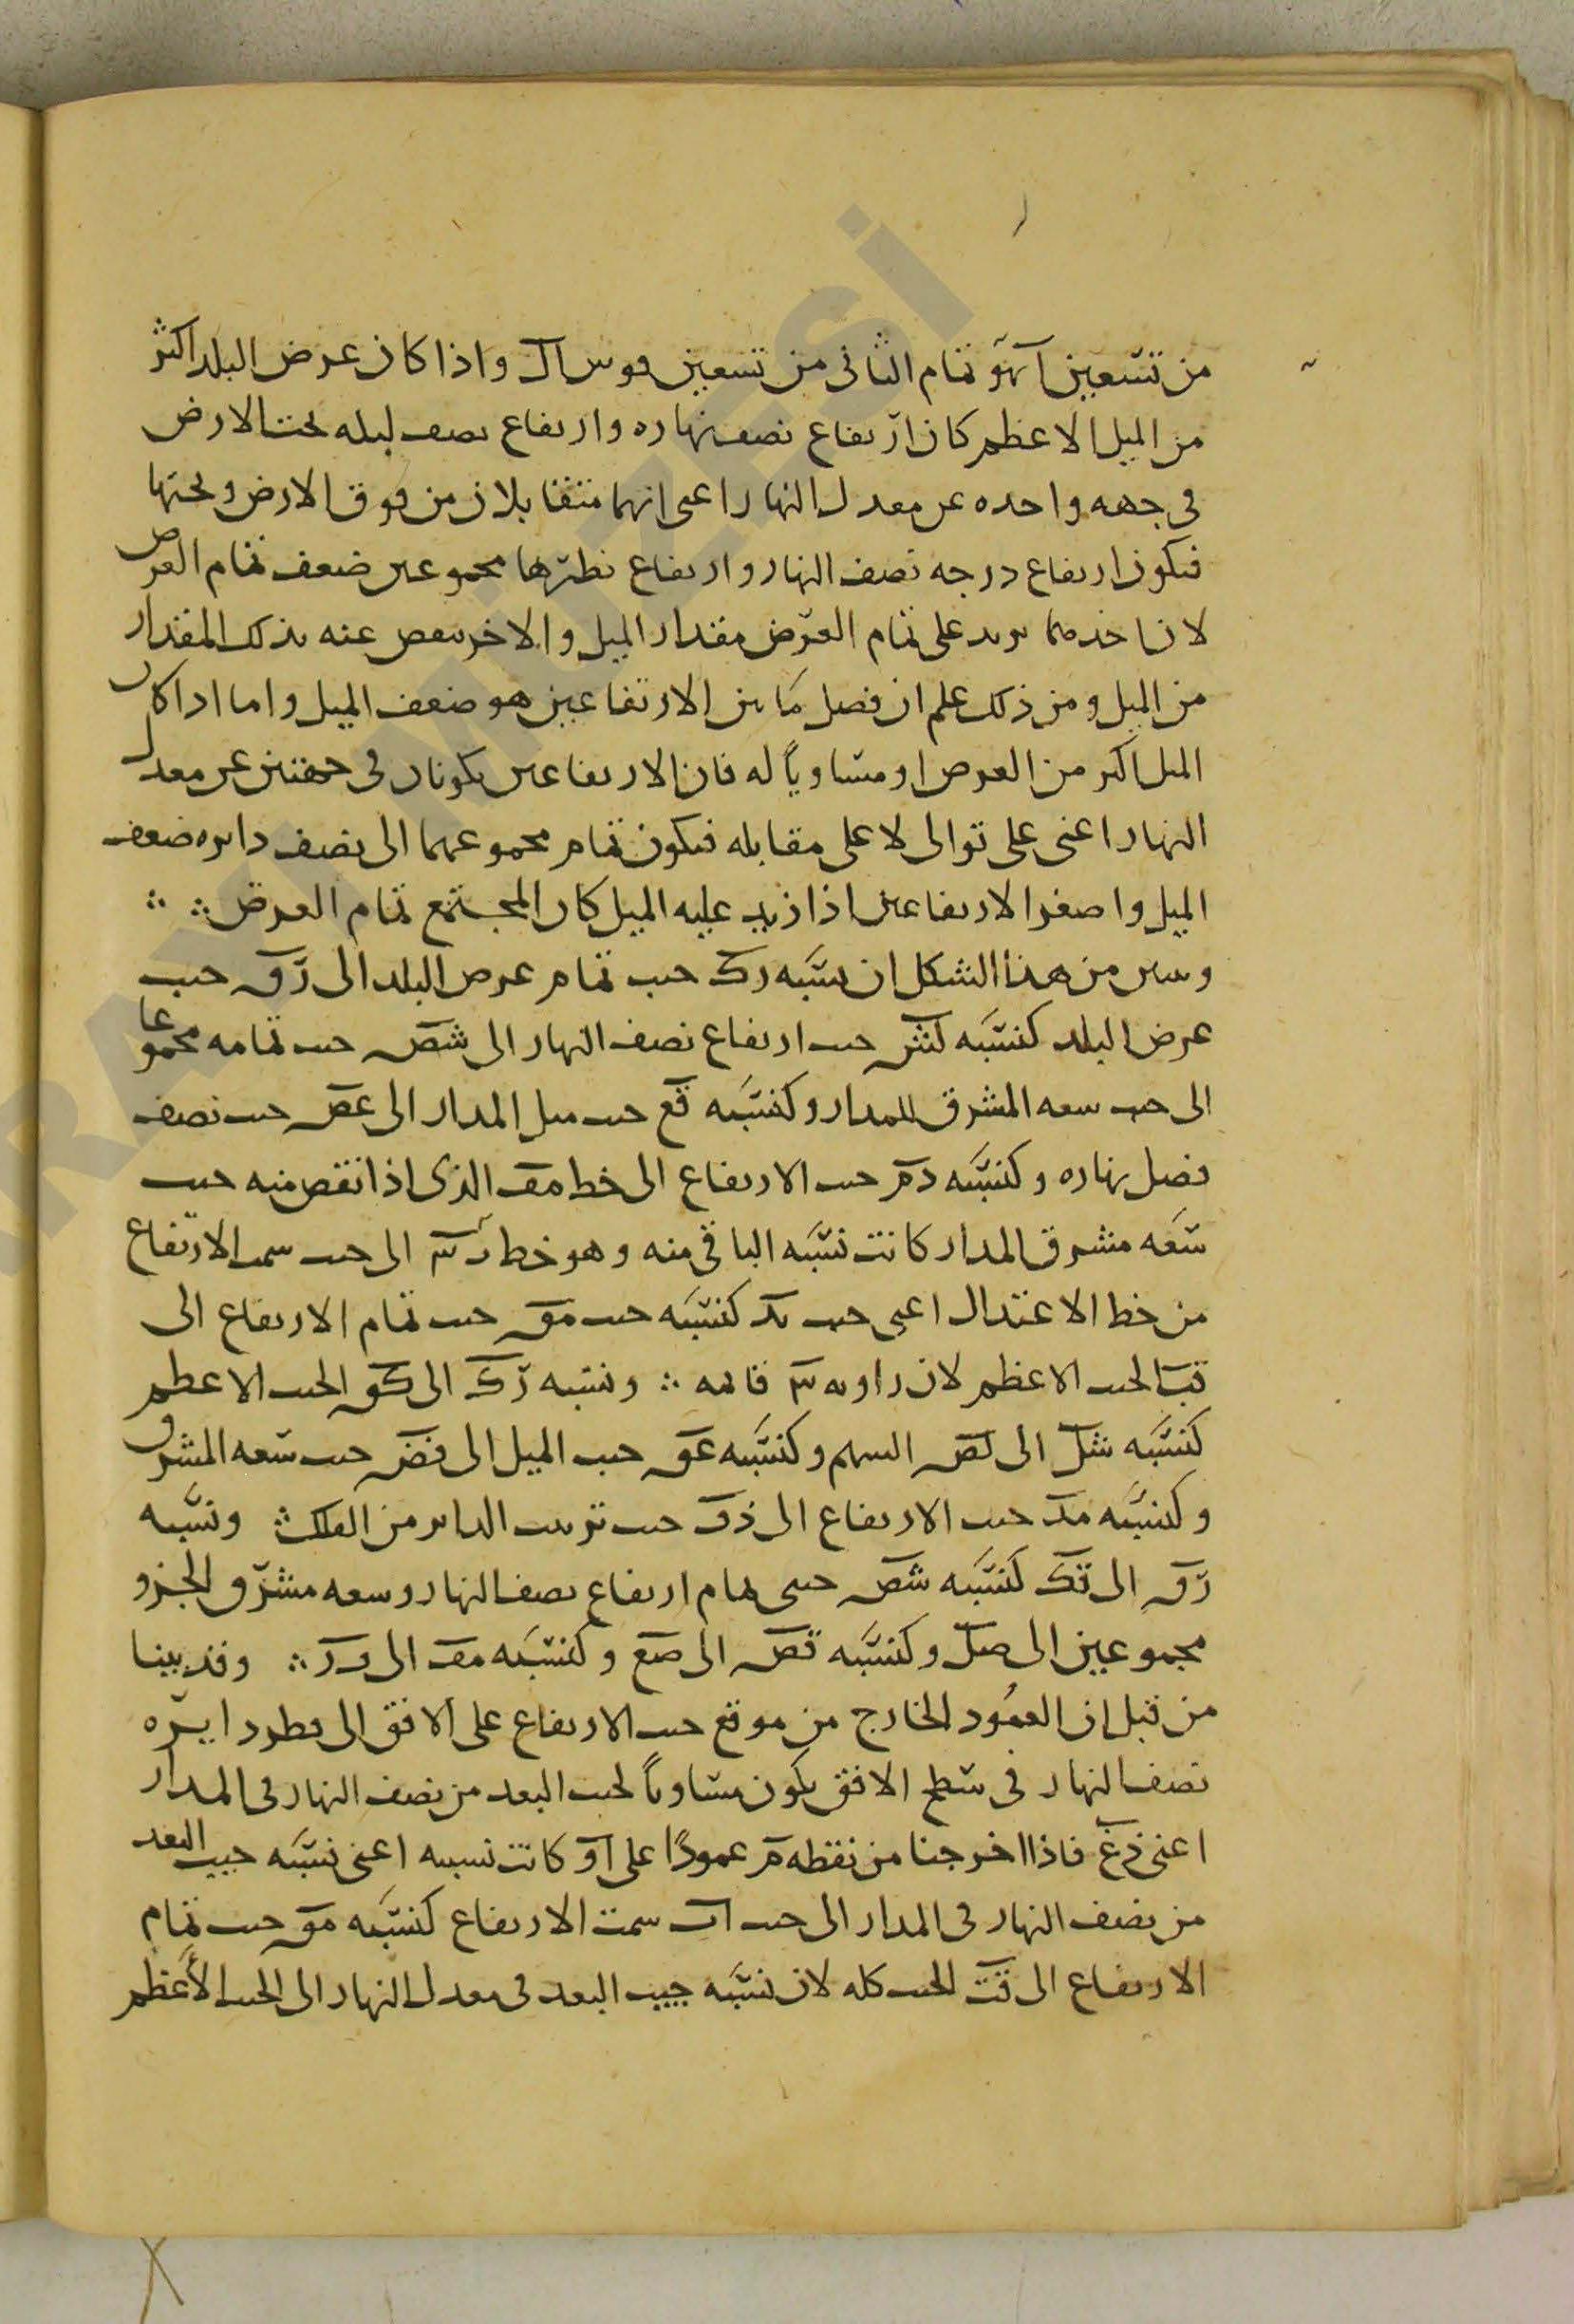 من تسعين آهو تمام الثانى من تسعين قوس آل واذا كان عرض البلد اكثر
من الميل الاعظم كان ارتفاع نصف نهاره وارتفاع نصف ليله تحت الارض
فى جهه واحده عن معدل النهار اعنى انهما متقابلان من فوق الارض وتحتها
فيكون ارتفاع درجه نصف النهار وارتفاع نظيرها مجموعين ضعف تمام العرض
لان احدهما يزيد على تمام العرض مقدار الميل والاخر ينقص عنه بذلك المقدار
من الميل ومن ذلك علم ان فصل ما بين الارتفاعين هو ضعف الميل واما اذا كان
الميل اكثر من العرض او مساوياً له فان الارتفاعين يكونان فى جهتين عن معدل
النهار اعنى على توالى لا على مقابله فيكون تمام مجموعهما الى نصف دايره ضعف
الميل واصغر الارتفاعين اذا زيد عليه الميل كان المجتمع تمام العرض
وتبين من هذا الشكل ان نسبه رك جيب تمام عرض البلد الى رق جيب
عرض البلد كنسبه لش جيب ارتفاع نصف النهار الى شص جيب تمامه مجموعا
الى جيب سعه المشرق للمدار وكنسبه قع جيب ميل المدار الى عص جيب نصف
فضل نهاره وكنسبه دم جيب الارتفاع الى خط مف الذى اذا نقص منه جيب
سعه مشرق المدار كانت نسبه الباقى منه وهو خط الى جيب سمت الارتفاع
من خط الاعتدال اعنى جيب كنسبه جيب مق جيب تمام الارتفاع الى
الجيب الاعظم لان زاويه قائمه ونسبه رك الى كق الجيب الاعظم
كنسبه شل الى لص السهم وكنسبه عق جيب الميل الى قض جيب سعه المشرق
وكنسبه مد جيب الارتفاع الى جيب ترتيب الداير من الفلك ونسبه
رق الى قك كنسبه شص جيبى تمام ارتفاع نصف النهار وسعه مشرق الجزو
مجموعين الى صل وكنسبه قص الى صع وكنسبه مف الى وقد بينا
من قبل ان العمود الخارج من موقع جيب الارتفاع على الافق الى قطر دايره
نصف النهار فى سطح الافق يكون مساوياً لجيب البعد من نصف النهار فى المدار
اعنى فاذا اخرجنا من نقطه م عموداً على آو كانت نسبته اعنى نسبه جيب البعد
من نصف النهار فى المدار الى جيب اب سمت الارتفاع كنسبه مق جيب تمام
الارتفاع الى الجيب كله لان نسبه جيب البعد فى معدل النهار الى الجيب الأعظم